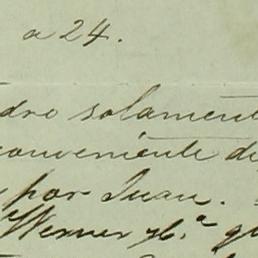 a 24.
dro solament
conveniente de
por Juan.
Werner y C.ª qu